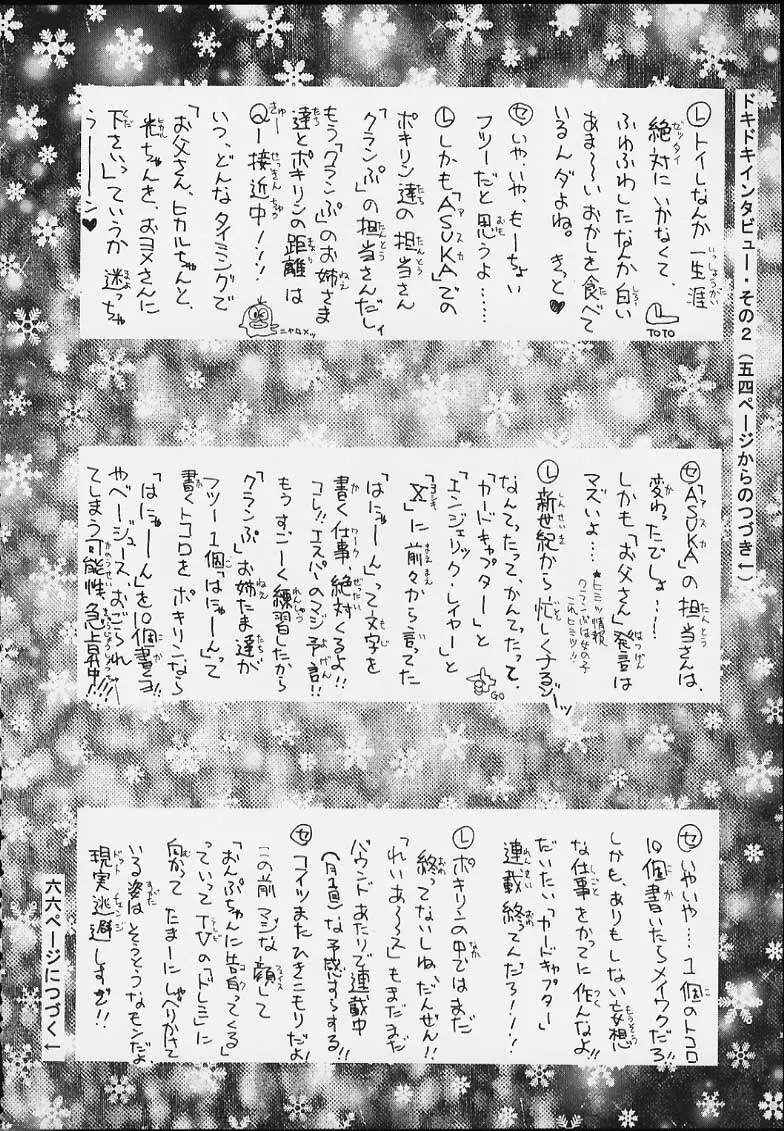 ドキドキインタビュー・その2(五四ページからのつづき↓)
Ⓛトイレなんか一生涯
絶対にいかなくて、
ふわふわしたなんか白い
あま~~いおかしを食べて
いるんダよね。きっと♥
TOTO
㋝いやいや、もーちょい
フツーだと思うよ……
Ⓛしかも「ASUKA」での
ポキリン達の担当さん
「クランプ」の担当さんだしィ
もう「クランプ」のお姉さま
達とポキリンの距離は
Q—接近中!!!
ニャロメッ
いつ、どんなタイミングで
「お父さん、ヒカルちゃんと、
光ちゃんを、おヨメさんに
下さいっ」ていうか迷っちゃ
うーーーン♥
㋝「ASUKA」の担当さんは、
変わったでしょ……
しかも「お父さん」発言は
マズいよ……
★ヒミツ情報
クランプは女の子
これヒミツ!!
Ⓛ新世紀から忙しくなるゾーッ
なんてったって、かんてったって、
「カードキャプター」と
GO
「エンジェリック・レイヤー」と
「X」に前々から言ってた
「はにゃーん」って文字を
書く仕事、絶対くるよ!!
コレ!!エスパーのマジ予言!!
もうすごーく練習したから
「クランプ」お姉たま達が
フツー1個「はにゃーん」って
書くトコロをポキリンなら
「はにゃーん」を10個書くヨ!!
やべージュース、おごられ
てしまう可能性、急上昇中!!!
㋝いやいや…1個のトコロ
10個書いたらメイワクだろ!!
しかも、ありもしない妄想
な仕事をかってに作んなよ!!
だいたい「カードキャプター」
連載終ってんだろ!!!
Ⓛポキリンの中ではまだ
終ってないしね、だんぜん!!
「れいあ~~ス」もまだまだ
バウンドあたりで連載中
(月1回)な予感すらする!!
㋝コイツまたひきこもりだよ!
この前マジな顔して
「おんぷちゃんに告ってくる」
っていってTVの「ドレミ」に
向かってたまーにしゃべりかけて
いる姿はそうとうなモンだよ
現実逃避しすぎ!!
六六ページにつづく↓